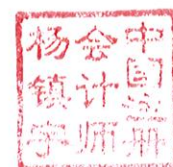 中国注册
会计师
杨镇宇